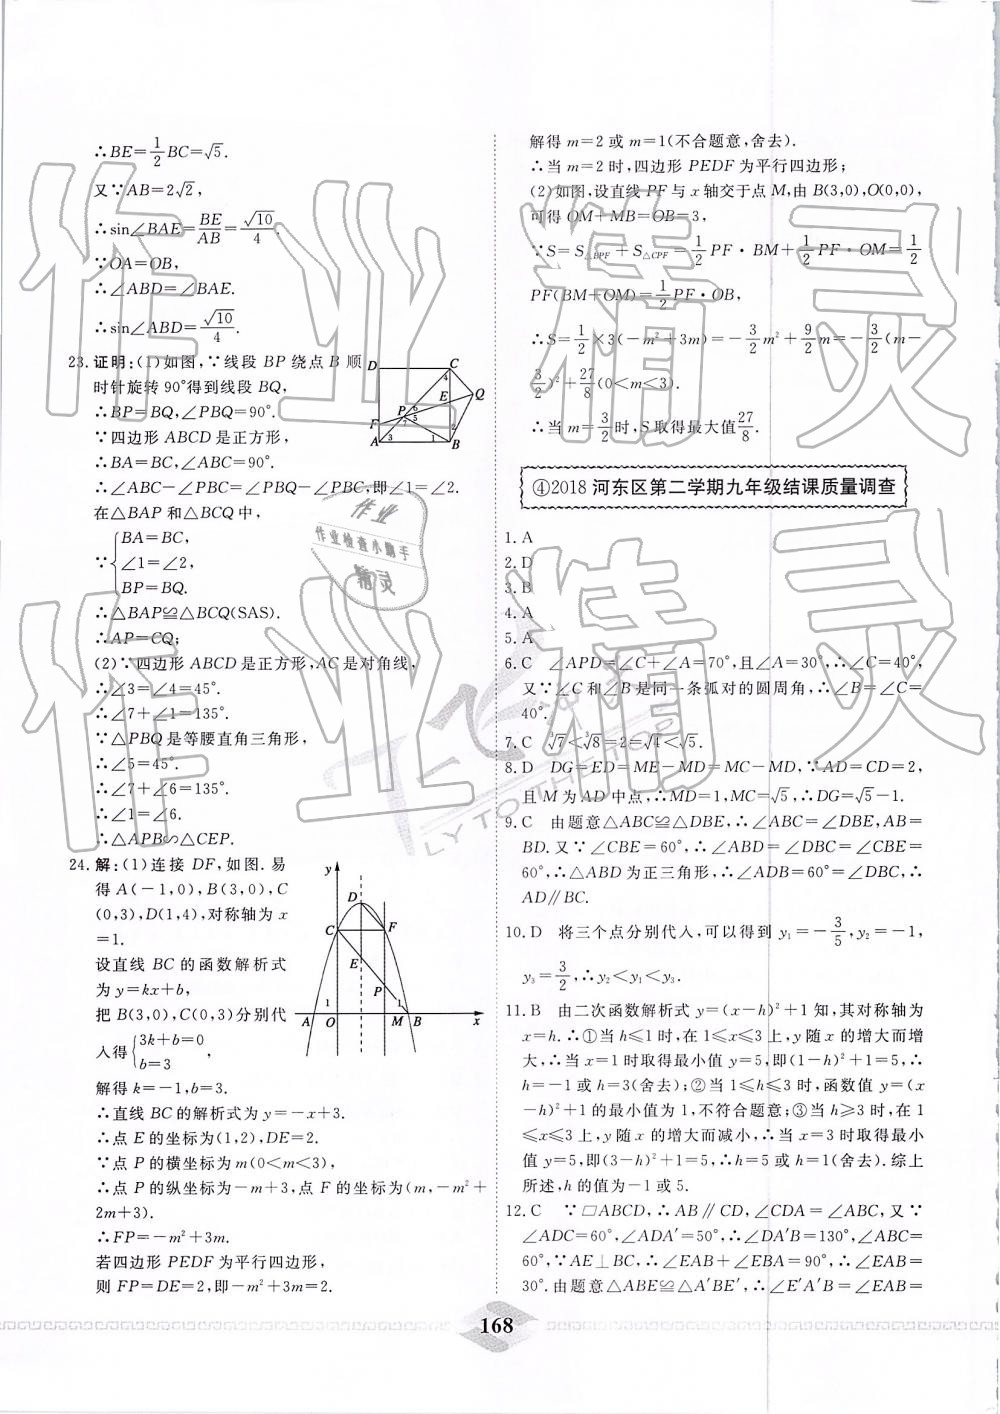 ∴BE=1/2 BC=√5.
又∵AB=2√2,
∴sin∠BAE=BE/AB=√10/4.
∵OA=OB,
∴∠ABD=∠BAE.
∴sin∠ABD=√10/4.
23. 证明:(1)如图,∵线段 BP 绕点 B 顺
时针旋转 90°得到线段 BQ,
∴BP=BQ,∠PBQ=90°.
∵四边形 ABCD 是正方形,
∴BA=BC,∠ABC=90°.
∴∠ABC-∠PBC=∠PBQ-∠PBC,即∠1=∠2.
在△BAP 和△BCQ 中,
BA=BC,
∵{∠1=∠2,
BP=BQ.
∴△BAP≌△BCQ(SAS).
∴AP=CQ;
(2)∵四边形 ABCD 是正方形,AC 是对角线,
∴∠3=∠4=45°.
∴∠7+∠1=135°.
∵△PBQ 是等腰直角三角形,
∴∠5=45°.
∴∠7+∠6=135°.
∴∠1=∠6.
∴△APB∽△CEP.
24. 解:(1)连接 DF,如图.易
得 A(-1,0),B(3,0),C
(0,3),D(1,4),对称轴为 x
=1.
设直线 BC 的函数解析式
为 y=kx+b,
把 B(3,0),C(0,3)分别代
入得{3k+b=0
b=3,
解得 k=-1,b=3.
∴直线 BC 的解析式为 y=-x+3.
∴点 E 的坐标为(1,2),DE=2.
∵点 P 的横坐标为 m(0<m<3),
∴点 P 的纵坐标为-m+3,点 F 的坐标为(m,-m²+
2m+3).
∴FP=-m²+3m.
若四边形 PEDF 为平行四边形,
则 FP=DE=2,即-m²+3m=2,
D C
4
E
Q
F P 6
5
7
2
A 3 1 B
y
D
C F
E
P
1
A O M B x
解得 m=2 或 m=1(不合题意,舍去).
∴当 m=2 时,四边形 PEDF 为平行四边形;
(2)如图,设直线 PF 与 x 轴交于点 M,由 B(3,0),O(0,0),
可得 OM+MB=OB=3,
∵S=S△BPF+S△CPF=1/2 PF·BM+1/2 PF·OM=1/2
PF(BM+OM)=1/2 PF·OB,
∴S=1/2×3(-m²+3m)=-3/2 m²+9/2 m=-3/2(m-
3/2)²+27/8(0<m<3).
∴当 m=3/2时,S 取得最大值27/8.
④2018 河东区第二学期九年级结课质量调查
1. A
2. D
3. B
4. A
5. A
6. C ∠APD=∠C+∠A=70°,且∠A=30°,∴∠C=40°,
又∵∠C 和∠B 是同一条弧对的圆周角,∴∠B=∠C=
40°.
7. C ∛7<∛8=2=√4<√5.
8. D DG=ED=ME-MD=MC-MD,∵AD=CD=2,
且 M 为 AD 中点,∴MD=1,MC=√5,∴DG=√5-1.
9. C 由题意△ABC≌△DBE,∴∠ABC=∠DBE,AB=
BD.又∵∠CBE=60°,∴∠ABC=∠DBE=∠CBE=
60°,∴△ABD 为正三角形,∴∠ADB=60°=∠DBE,∴
AD∥BC.
10. D 将三个点分别代入,可以得到 y₁=-3/5,y₂=-1,
y₃=3/2,∴y₂<y₁<y₃.
11. B 由二次函数解析式 y=(x-h)²+1 知,其对称轴为
x=h.∴①当 h≤1 时,在 1≤x≤3 上,y 随 x 的增大而增
大,∴当 x=1 时取得最小值 y=5,即(1-h)²+1=5,∴h
=-1 或 h=3(舍去);②当 1≤h≤3 时,函数值 y=(x
-h)²+1 的最小值为 1,不符合题意;③当 h≥3 时,在 1
≤x≤3 上,y 随 x 的增大而减小,∴当 x=3 时取得最小值
y=5,即(3-h)²+1=5,∴h=5 或 h=1(舍去).综上
所述,h 的值为-1 或 5.
12. C ∵▱ABCD,∴AB∥CD,∠CDA=∠ABC,又∵
∠ADC=60°,∠ADA′=50°,∴∠DA′B=130°,∠ABC=
60°,∵AE⊥BC,∴∠EAB+∠EBA=90°,∴∠EAB=
30°.由题意△ABE≌△A′BE′,∴∠E′A′B=∠EAB=
168
作业精灵
作业精灵
作业
作业检查小助手
精灵